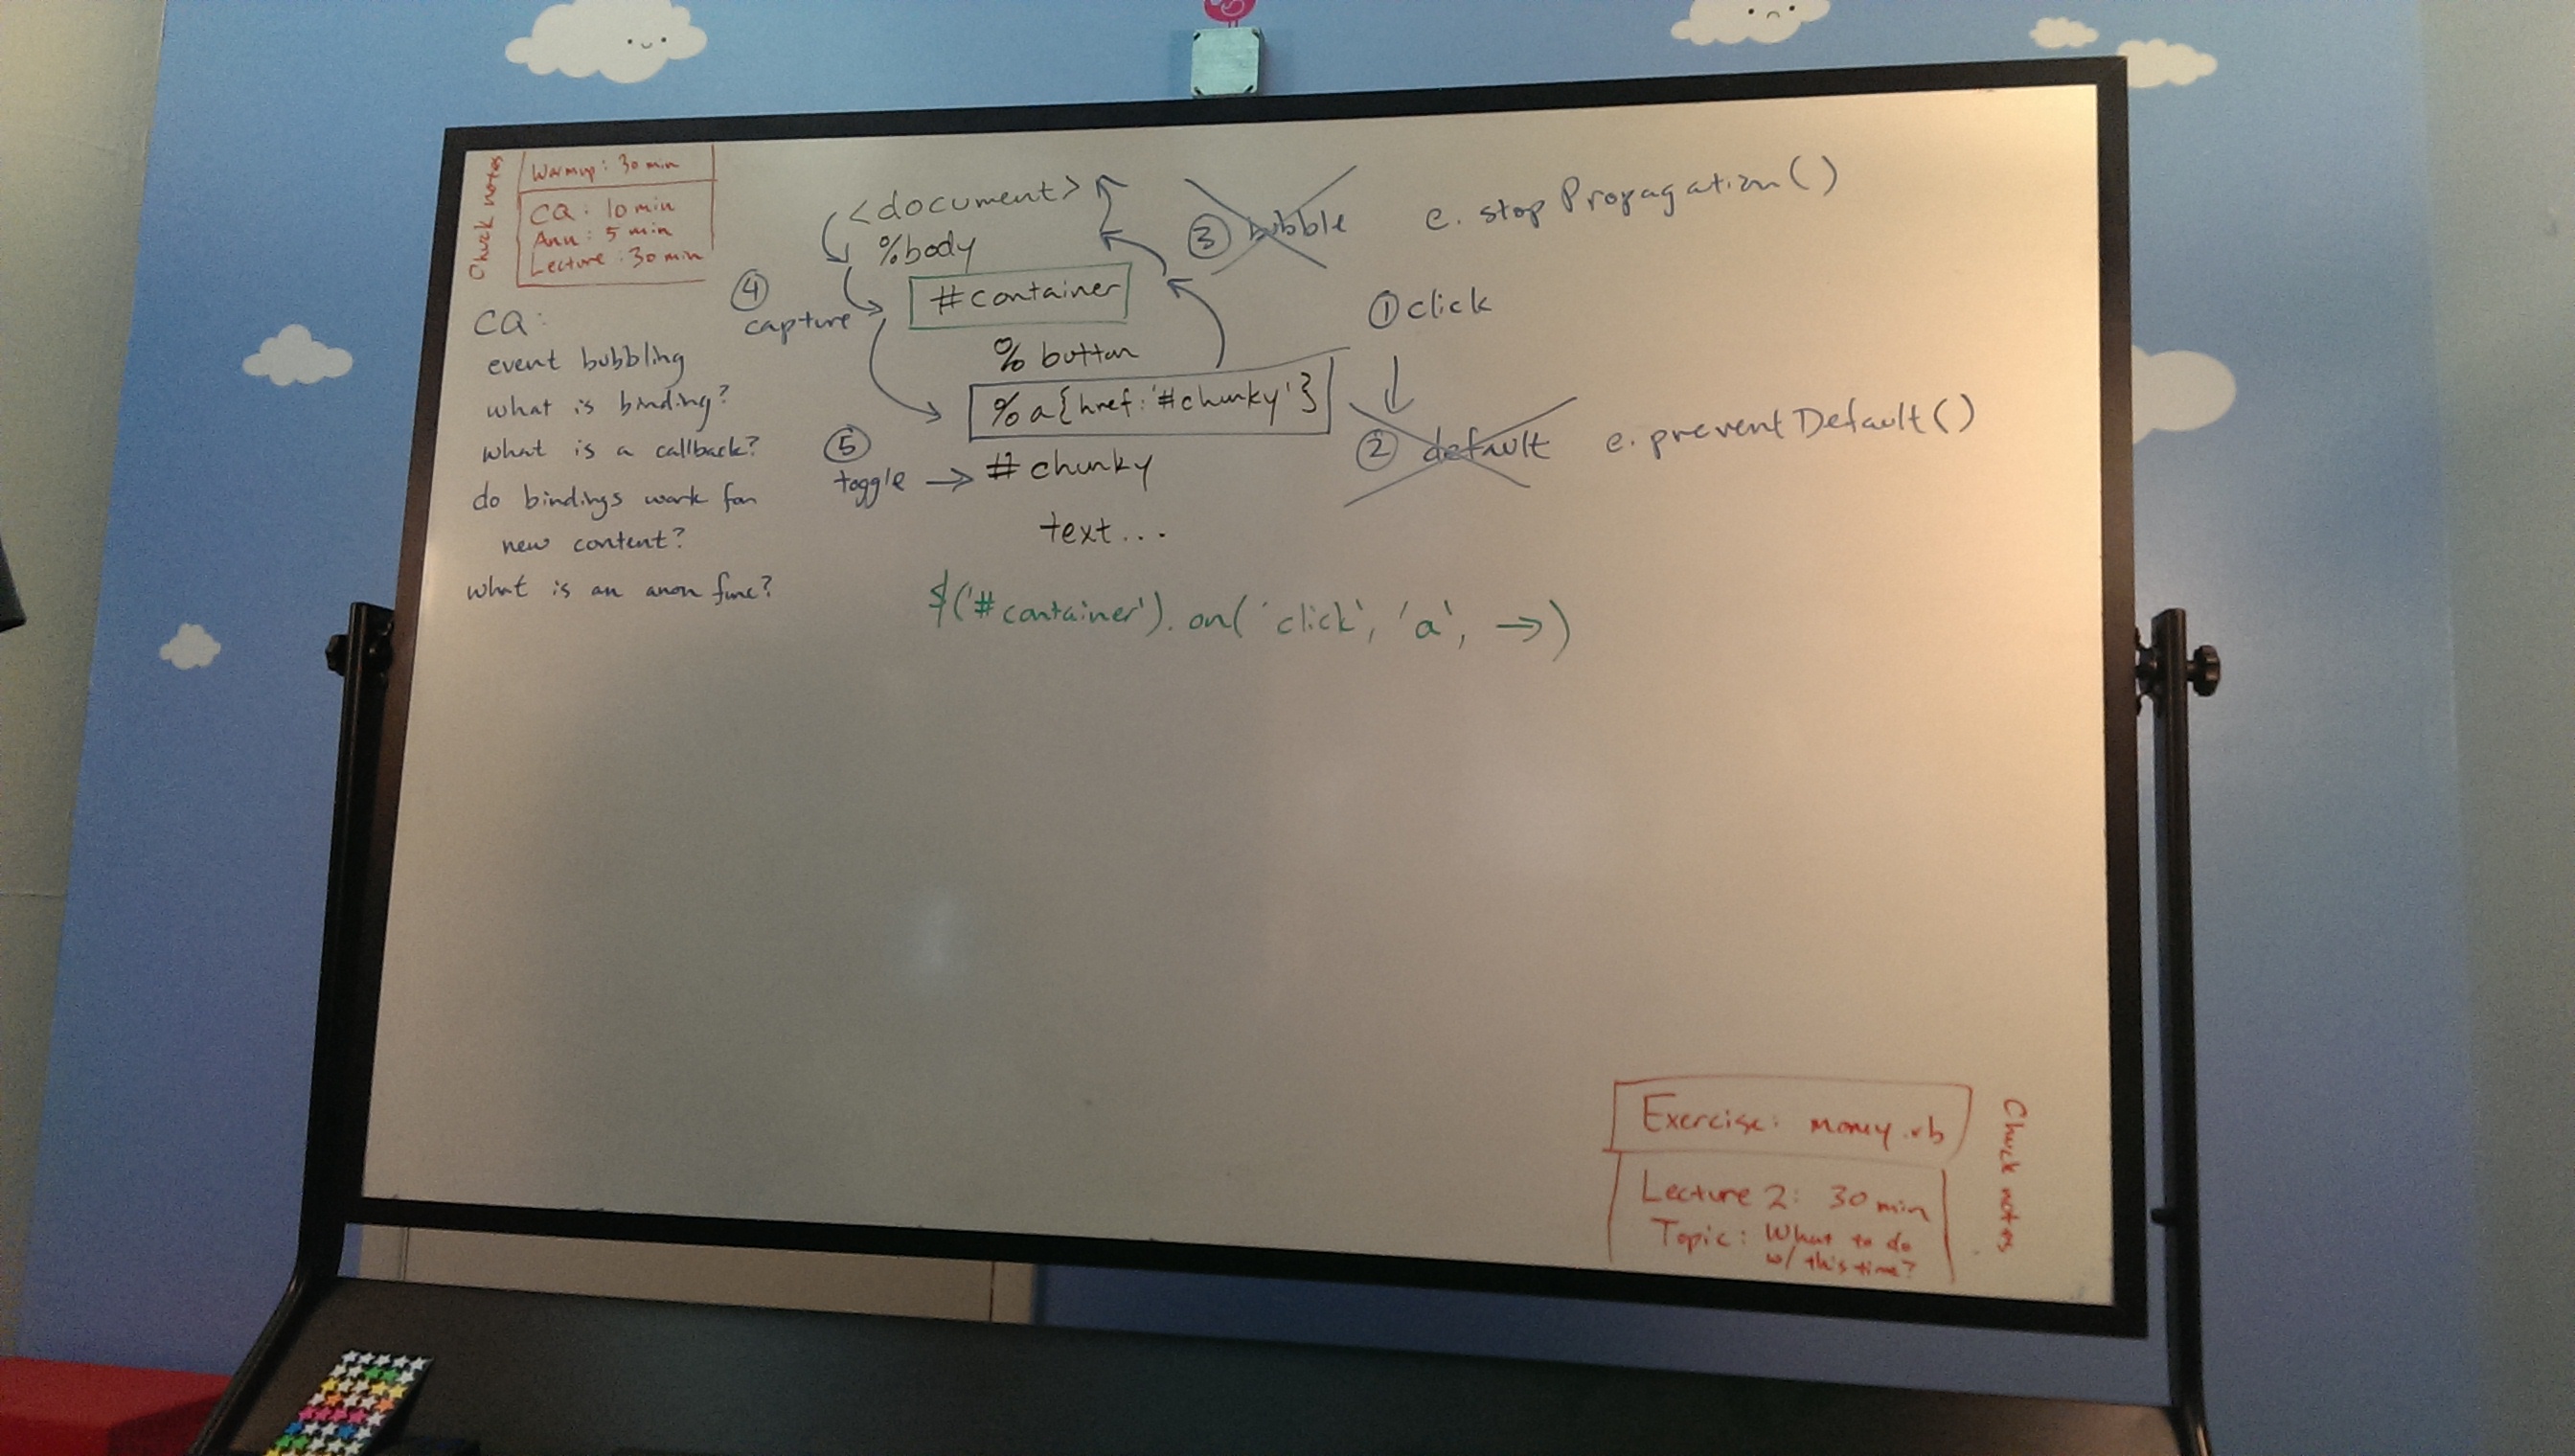 Chuck notes
Warmup: 30 min
CQ: 10 min
Ann: 5 min
Lecture: 30 min
CQ:
event bubbling
what is binding?
what is a callback?
do bindings work for
new content?
what is an anon func?
<document>
%body
#container
% button
%a{href:'#chunky'}
#chunky
text...
④
capture
⑤
toggle →
③ bubble
e.stopPropagation()
① click
② default
e.preventDefault()
$('#container').on('click', 'a', →)
Exercise: money.rb
Lecture 2: 30 min
Topic: What to do
w/ this time?
Chuck notes